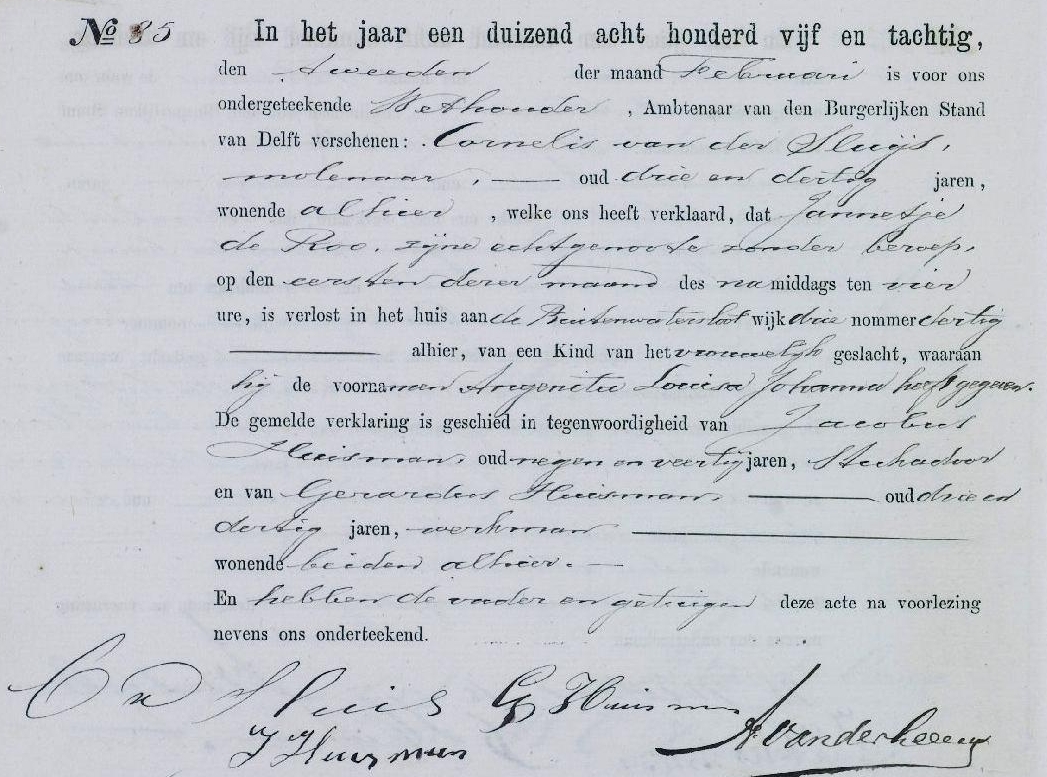 № 85 In het jaar een duizend acht honderd vijf en tachtig,
den tweeden der maand Februari is voor ons
ondergeteekende Wethouder, Ambtenaar van den Burgerlijken Stand
van Delft verschenen: Cornelis van der Sluijs,
molenaar, oud drie en dertig jaren,
wonende alhier, welke ons heeft verklaard, dat Jannetje
de Roo, zijne echtgenoote zonder beroep,
op den eersten dezer maand des namiddags ten vier
ure, is verlost in het huis aan de Buitenwatersloot wijk drie nommer dertig
alhier, van een Kind van het vrouwelijk geslacht, waaraan
hij de voornamen Louisa Johanna heeft gegeven.
De gemelde verklaring is geschied in tegenwoordigheid van Jacobus
Huisman, oud negen en veertig jaren,
en van Gerardus Huisman, oud drie en
dertig jaren, werkman
wonende beiden alhier.
En hebben de vader en getuigen deze acte na voorlezing
nevens ons onderteekend.
C vd Sluis G Huisman
J Huisman